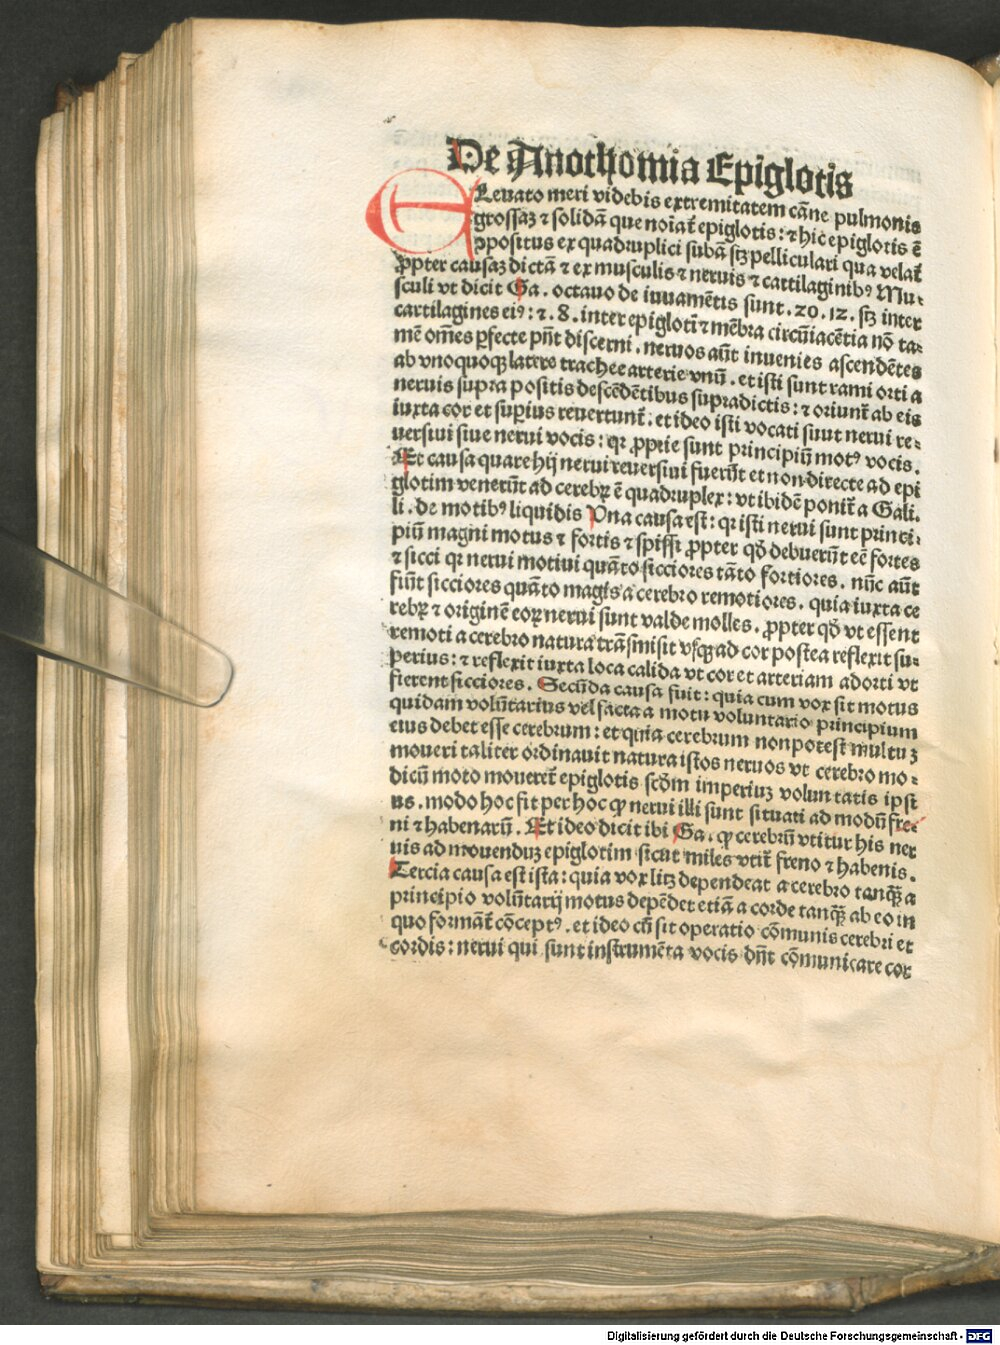 De Anothomia Epiglotis
ELeuato meri videbis extremitatem cãne pulmonis
grossaꝫ ⁊ solidã que noĩat̃ epiglotis: ⁊ hic epiglotis ẽ
ↄpositus ex quadruplici subãn sꝫ pelliculari qua velat̃
ꝓpter causaꝫ dictã ⁊ ex musculis ⁊ neruis ⁊ cartilaginibꝰ Mu⸗
sculi vt dicit Ga. octauo de iuuamẽtis sunt .20. 12. sꝫ inter
cartilagines eiꝰ: ⁊ .8. inter epiglotĩ ⁊ mẽbra circũiacẽtia nõ ta⸗
mẽ om̃es ꝑfecte pñt discerni . neruos aũt inuenies ascendẽtes
ab vnoquoqꝫ latere trachee arterie vnũ . et isti sunt rami orti a
neruis supra positis descẽdẽtibus supradictis: ⁊ oriunt̃ ab eis
iuxta cor et suꝑius reuertunt̃ . et ideo isti vocati suut nerui re⸗
uersiui siue nerui vocis: qꝛ ꝓprie sunt principiũ motꝰ vocis.
Et causa quare hij nerui reuersiui fuerũt et non directe ad epi
glotim venerũt ad cerebꝝ ẽ quadruplex: vt ibidẽ ponit̃ a Gali.
li. de motibꝰ liquidis Vna causa est: qꝛ isti nerui sunt princi⸗
piũ magni motus ⁊ fortis ⁊ spissi ꝓpter qđ debuerũt eẽ fortes
⁊ sicci qꝛ nerui motiui quãto sicciores tãto fortiores . nũc aũt
fiũt sicciores quãto magis a cerebro remotiores . quia iuxta ce
rebꝝ ⁊ originẽ eoꝝ nerui sunt valde molles . ꝓpter qđ vt essent
remoti a cerebro natura trãsmisit vsqꝫ ad cor postea reflexit su⸗
perius: ⁊ reflexit iuxta loca calida vt cor et arteriam adorti vt
fierent sicciores . Secũda causa fuit: quia cum vox sit motus
quidam volũtarius vel facta a motu voluntario principium
eius debet esse cerebrum: et quia cerebrum non potest multuꝫ
moueri taliter ordinauit natura istos neruos vt cerebro mo⸗
dicũ moto moueret̃ epiglotis scđm imperiuꝫ voluntatis ipsi
us . modo hoc fit per hoc ꝙ nerui illi sunt situati ad modũ fre⸗
ni ⁊ habenarũ . Et ideo dicit ibi Ga. ꝙ cerebrũ vtitur his ner
uis ad mouenduꝫ epiglotim sicut miles vtit̃ freno ⁊ habenis.
Tercia causa est ista: quia vox litꝫ dependeat a cerebro tanqꝫ a
principio volũtarij motus depẽdet etiã a corde tanqꝫ ab eo in
quo formãt̃ cõceptꝰ . et ideo cũ sit operatio cõmunis cerebri et
cordis: nerui qui sunt instrumẽta vocis dñt cõmunicare cor
Digitalisierung gefördert durch die Deutsche Forschungsgemeinschaft - DFG